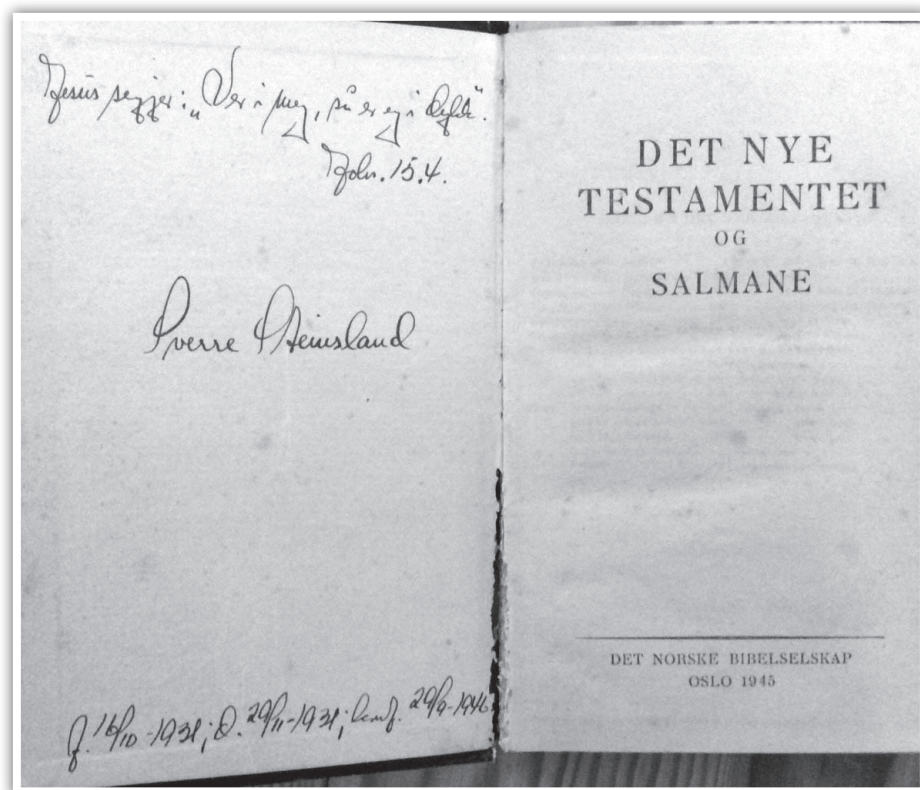 Jesus segjer: „Ver i meg, så er eg i dykk".
Joh. 15.4.
Sverre Steinsland
f. 16/10 -1931; D. 29/11-1931; konf. 29/9-1946
DET NYE
TESTAMENTET
OG
SALMANE
DET NORSKE BIBELSELSKAP
OSLO 1945